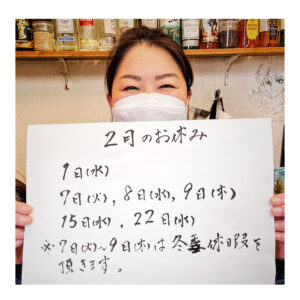 2月のお休み
1日(水)
7日(火), 8日(水), 9日(木)
15日(水), 22日(水)
※7日(火)~9日(木)は冬季休暇を
頂きます。